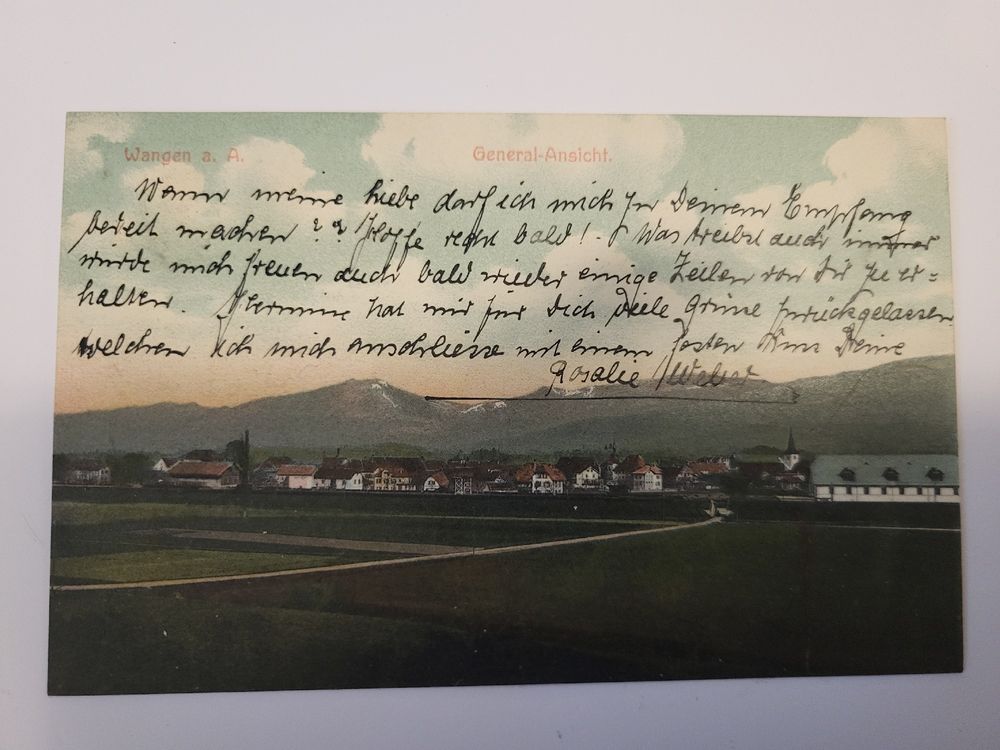 Wangen a. A.
General-Ansicht.
Wann meine liebe darf ich mich zu Deinem Empfang
bereit machen ?? Hoffe recht bald! Was treibst auch immer
würde mich freuen auch bald wieder einige Zeilen von Dir zu er=
halten. Hermine hat mir für Dich viele Grüsse zurückgelassen
welchen ich mich anschliesse mit einem festen Kuss Deine
Rosalie Weber